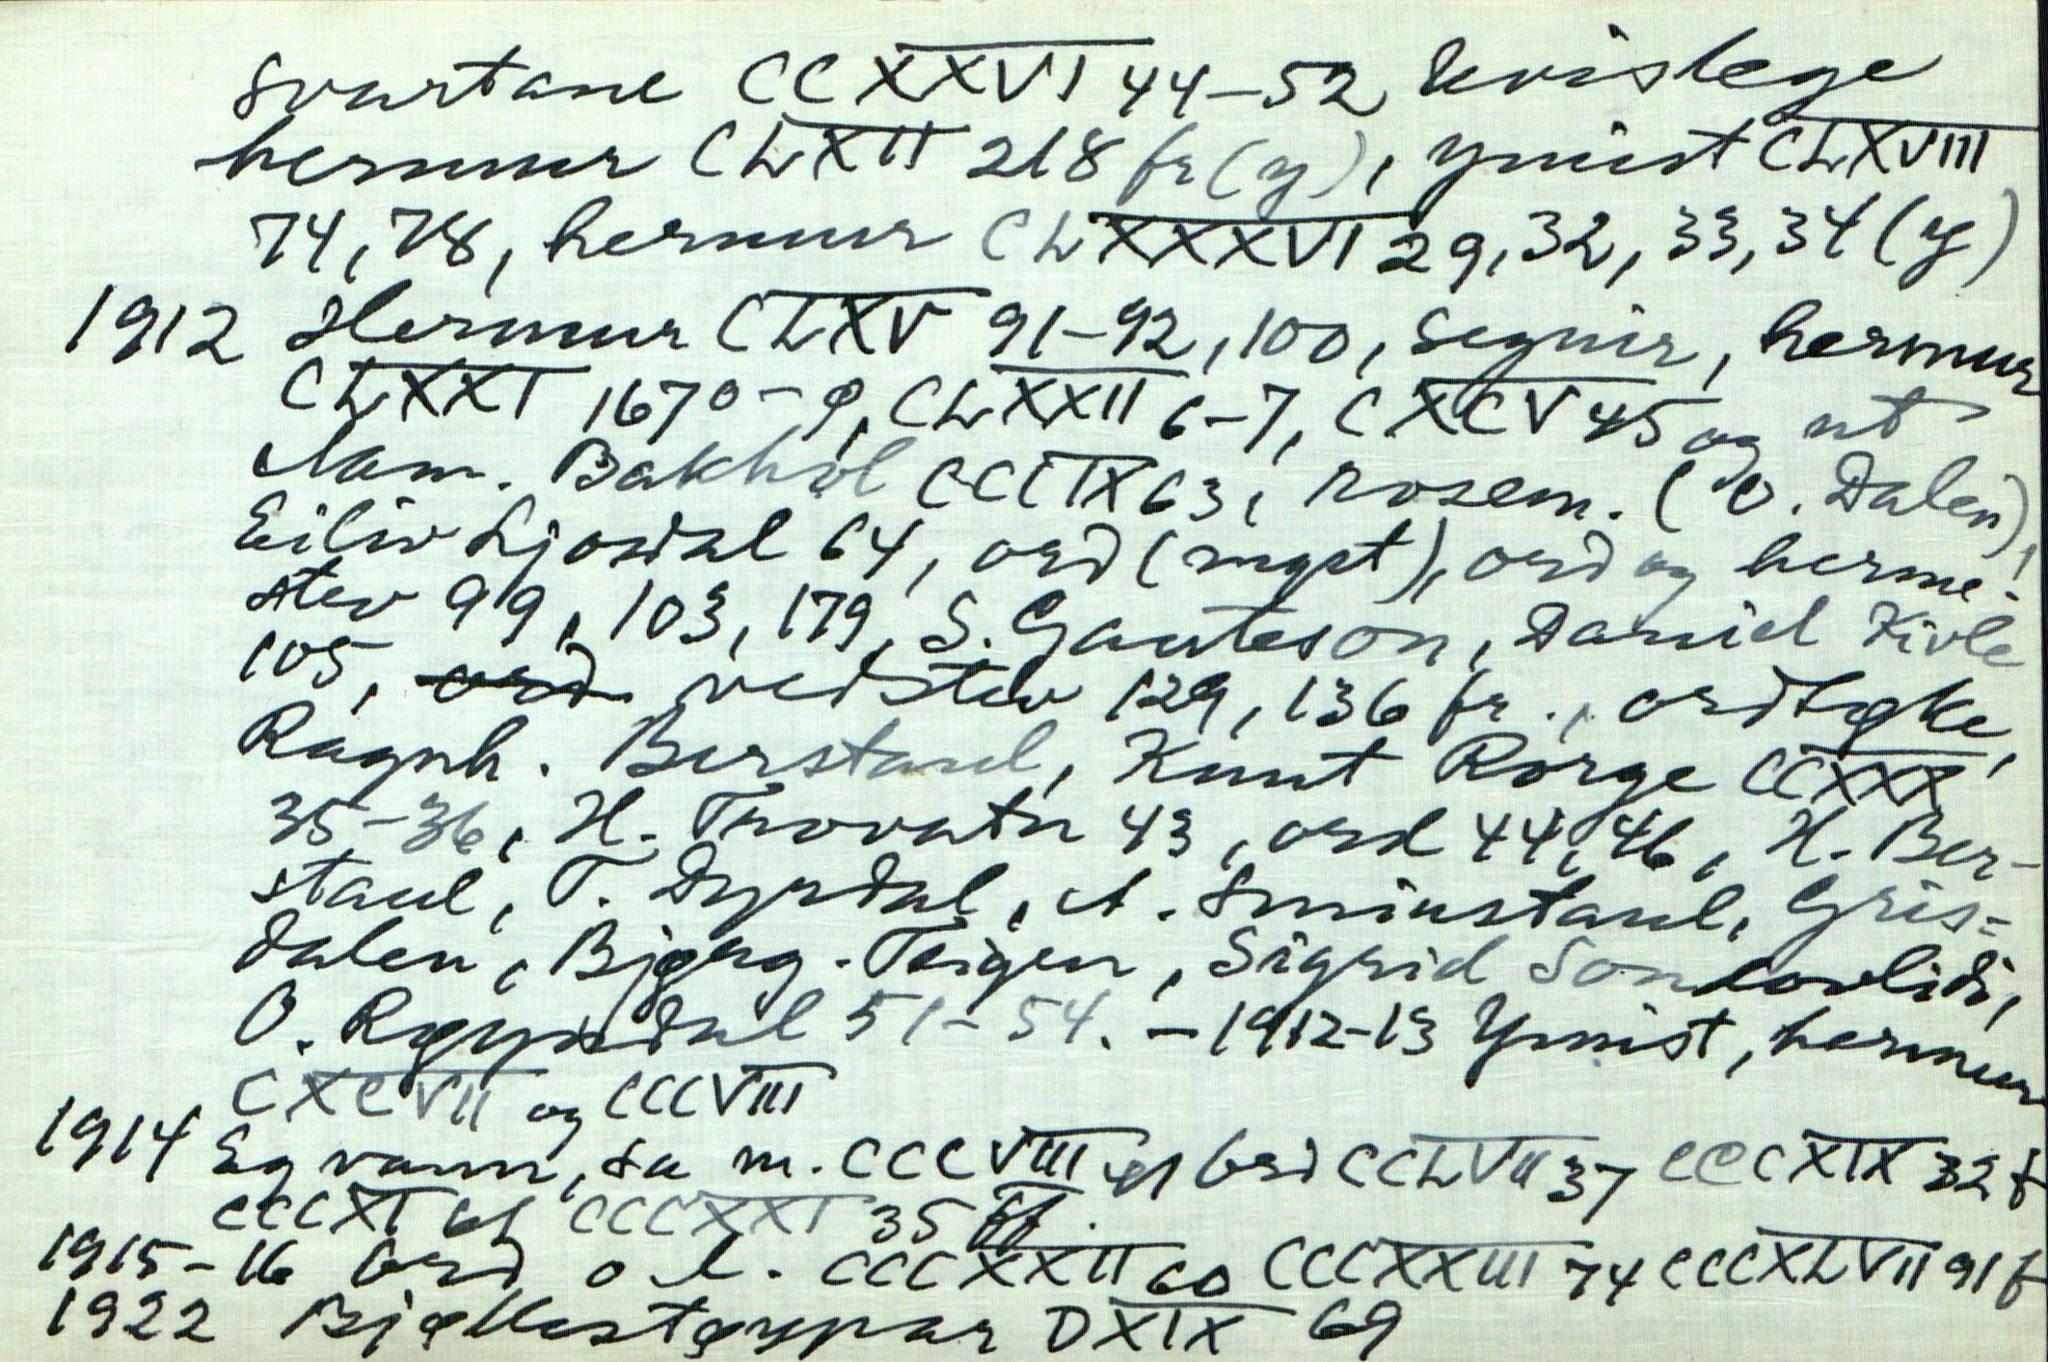 Svartane CCXXVI 44-52 Kvislege
hermur CLXII 218 fr (y), ymist CLXVIII
74, 78, hermur CLXXXVI 29, 32, 33, 34 (y)
1912 Hermur CLXV 91-92, 100, segnir, hermur
CLXXI 1670-9, CLXXII 6-7, CXCV 45 og ut
Nam. Bakhol CCCIX 63, rosem. (O. Dalen),
Eiliv Ljosdal 64, ord (mgst), ord og herme-
stev 99, 103, 179, S. Gauteson, Daniel Kivle
105, vedstev 129, 136 fr., ordtøke,
Ragnh. Berstaul, Knut Rorge CCXXX
35-36, H. Trovatn 43, ord 44, 46, H. Ber-
staul, T. Dyrdal, A. Smiustaul, Gris-
dalen, Bjørg. Teigen, Sigrid Sondovlidi,
O. Røyndal 51-54. - 1912-13 Ymist, hermur
CXCVII og CCCVIII
1914 Eg vann, da m. CCCVIII 41 Ord CCLVII 37 CCCXIX 32 f
CCCXI 61 CCCXXI 35 ff.
1915-16 Ord o.l. CCCXXII 60 CCCXXIII 74 CCCXLVII 91 f
1922 Bjøllestøypar DXIX 69